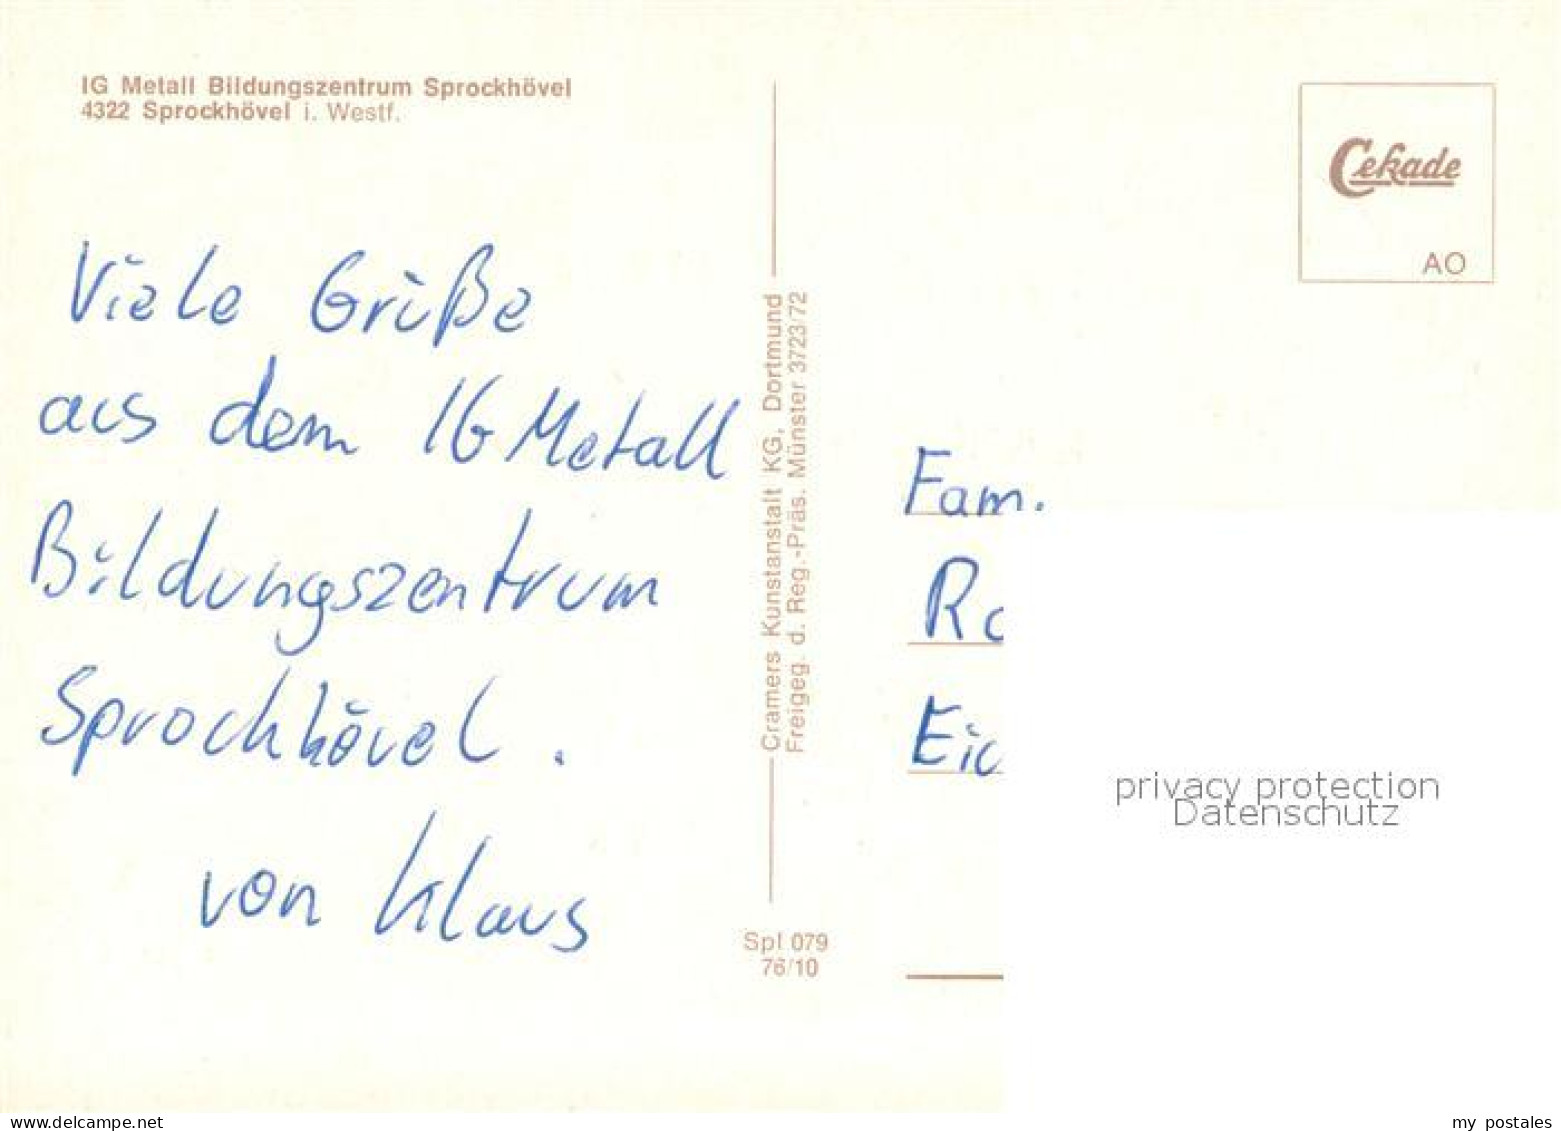 IG Metall Bildungszentrum Sprockhövel
4322 Sprockhövel i. Westf.
Viele Grüße
aus dem IG Metall
Bildungszentrum
Sprockhövel.
von Klaus
Cramers Kunstanstalt KG, Dortmund
Freigeg. d. Reg.-Präs. Münster 3723/72
Spl 079
76/10
Cekade
AO
Fam.
privacy protection
Datenschutz
delcampe.net
my_postales